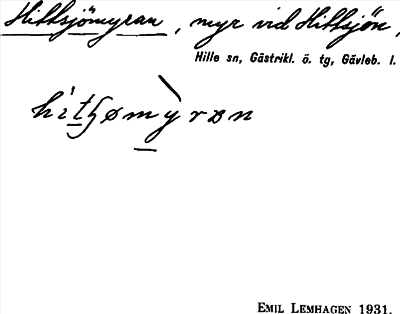 Hittsjömyran, myr vid Hittsjön,
Hille sn, Gästrikl. ö. tg, Gävleb. l.
hìtʃømỳrɒn
EMIL LEMHAGEN 1931.